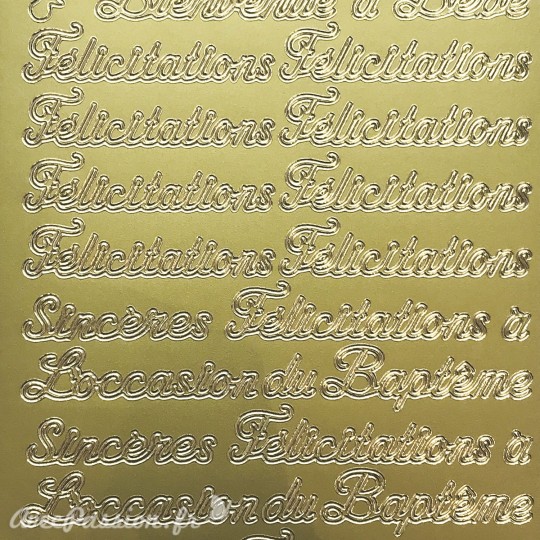 Bienvenue à Bébé
Félicitations Félicitations
Félicitations Félicitations
Félicitations Félicitations
Félicitations Félicitations
Sincères Félicitations à
L'occasion du Baptême
Sincères Félicitations à
L'occasion du Baptême
AvecPassion.fr